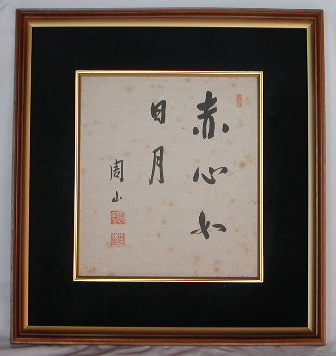 赤心如
日月
周山